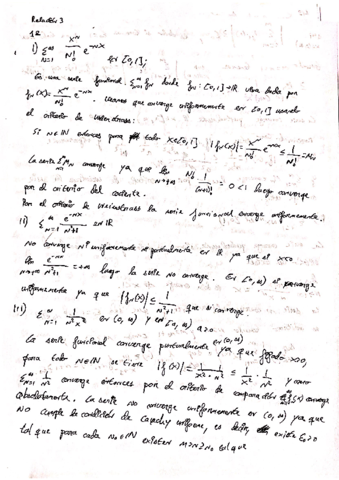 Relación 3
1R
i) ∑_{n=1}^∞ x^n/n! e^{-nx} en [0,1];
Es una serie funcional ∑_{n=1}^∞ f_n donde f_n: [0,1]→R viene dada por
f_n(x) = x^n/n! e^{-nx}. Veamos que converge uniformemente en [0,1] usando
el criterio de Weierstrass:
Si n∈N entonces para todo x∈[0,1] |f_n(x)| = x^n/n! e^{-nx} ≤ 1/n! = M_n
La serie ∑ M_n converge ya que lim_{n→∞} n!/(n+1)! = 0 < 1 luego converge
por el criterio del cociente.
Por el criterio de Weierstrass la serie funcional converge uniformemente.
ii) ∑_{n=1}^∞ e^{-nx}/n²+1 en R
No converge ni uniformemente ni puntualmente en R ya que si x<0
lim_{n→∞} e^{-nx}/n²+1 = +∞ luego la serie no converge. En [0,∞) si converge
uniformemente ya que |f_n(x)| ≤ 1/n²+1 que si converge
iii) ∑_{n=1}^∞ 1/n²x² en (0,∞) y en [a,∞) a>0
La serie funcional converge puntualmente en (0,∞) ya que fijado x>0,
para todo n∈N se tiene |f_n(x)| = 1/x² · 1/n² ≤ 1/x² · 1/n² y como
∑_{n=1}^∞ 1/n² converge entonces por el criterio de comparación ∑ f_n(x) converge
absolutamente. La serie no converge uniformemente en (0,∞) ya que
no cumple la condición de Cauchy uniforme, es decir, existe ε₀>0
tal que para cada n₀∈N existen m>n≥n₀ tal que